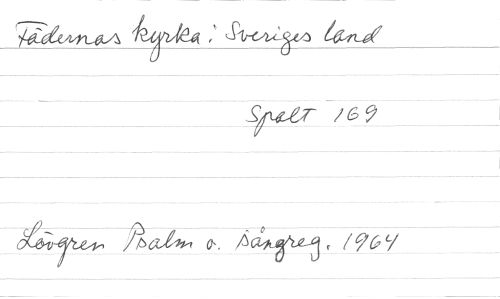 Fädernas kyrka i Sveriges land
Spalt 169
Lövgren Psalm o. sångreg. 1964